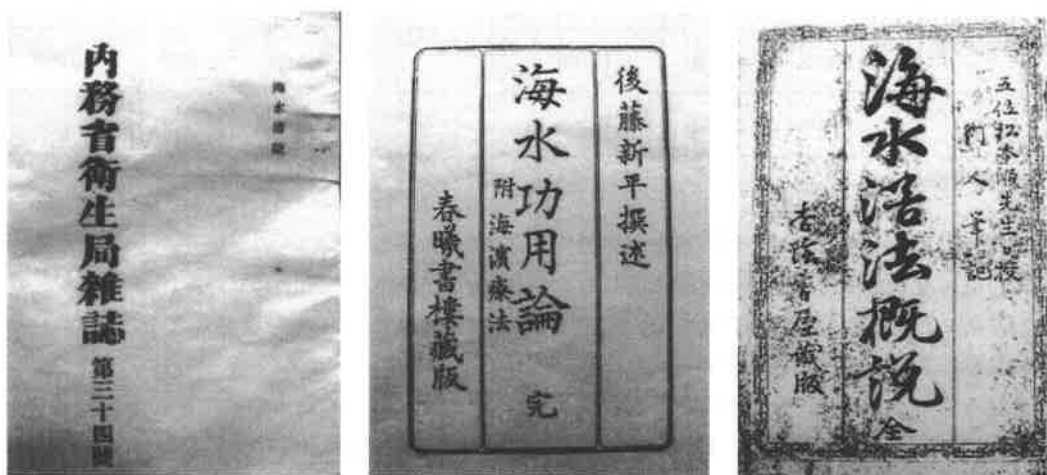 内務省衛生局雜誌 第三十四號
後藤新平撰述
海水功用論 完
附海濱療法
春曦書樓藏版
五位松本順先生口授
門人筆記
海水浴法概説 全
杏陰書屋藏版